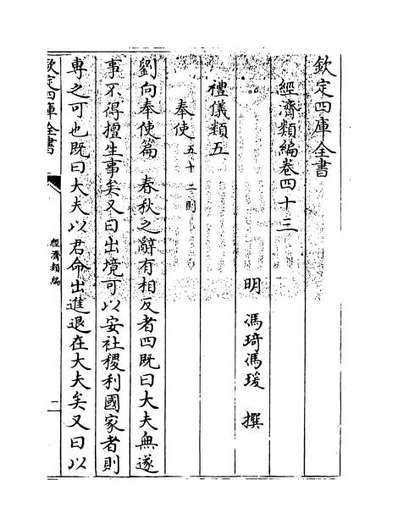 欽定四庫全書
經濟類編卷四十三
明 馮琦馮瑗 撰
禮儀類五
奉使五十二則
劉向奉使篇 春秋之辭有相反者四既曰大夫無遂
事不得擅生事矣又曰出境可以安社稷利國家者則
專之可也既曰大夫以君命出進退在大夫矣又曰以
欽定四庫全書
經濟類編